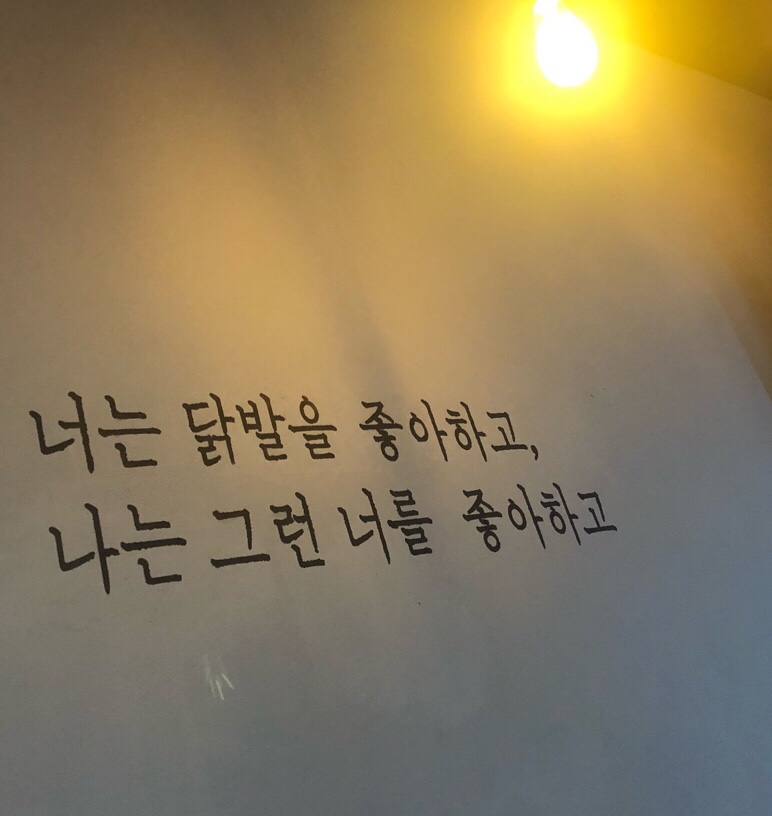 너는 닭발을 좋아하고,
나는 그런 너를 좋아하고